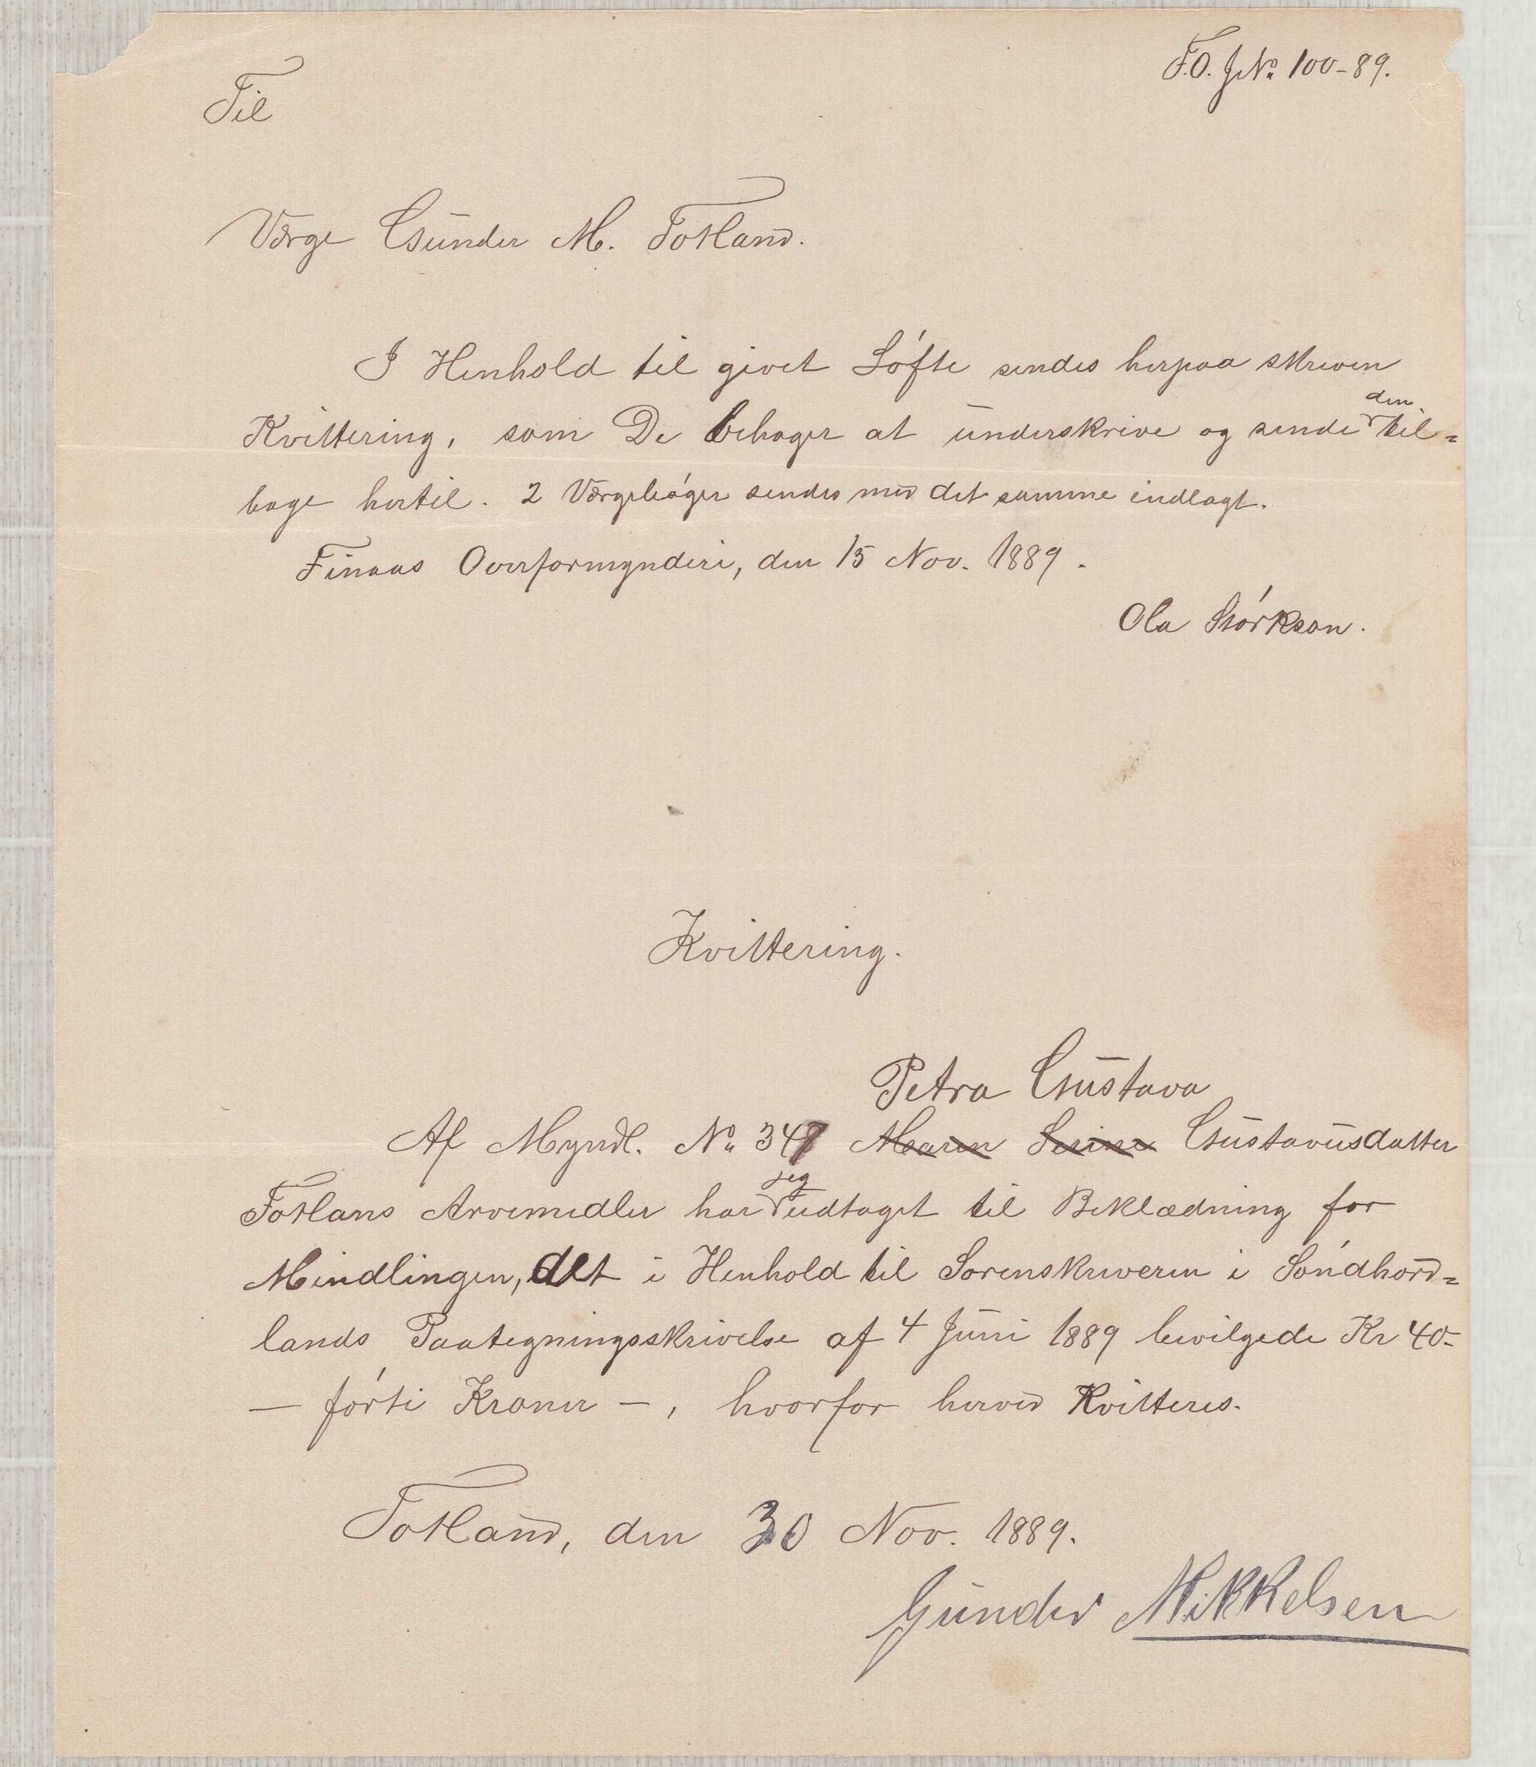 F.O. J.No. 100-89.
Til
Værge Gunder M. Totland.
I Henhold til givet Löfte sendes herpaa skreven
Kvittering, som De behager at underskrive og sende den til=
bage hertil. 2 Værgebøger sendes med det samme indlagt.
Finaas Overformynderi, den 15 Nov. 1889.
Ola Störkson.
Kvittering.
Petra Gustava
Af Myndl. No. 347 Maren Serine Gustavusdatter
Totlans Arvemidler har jeg udtaget til Beklædning for
Mindlingen, det i Henhold til Sorenskriveren i Söndhord=
lands Paategningsskrivelse af 4 Juni 1889 bevilgede Kr 40-
— förti Kroner —, hvorfor herved Kvitteres.
Totland, den 30 Nov. 1889.
Gunder Mikkelsen